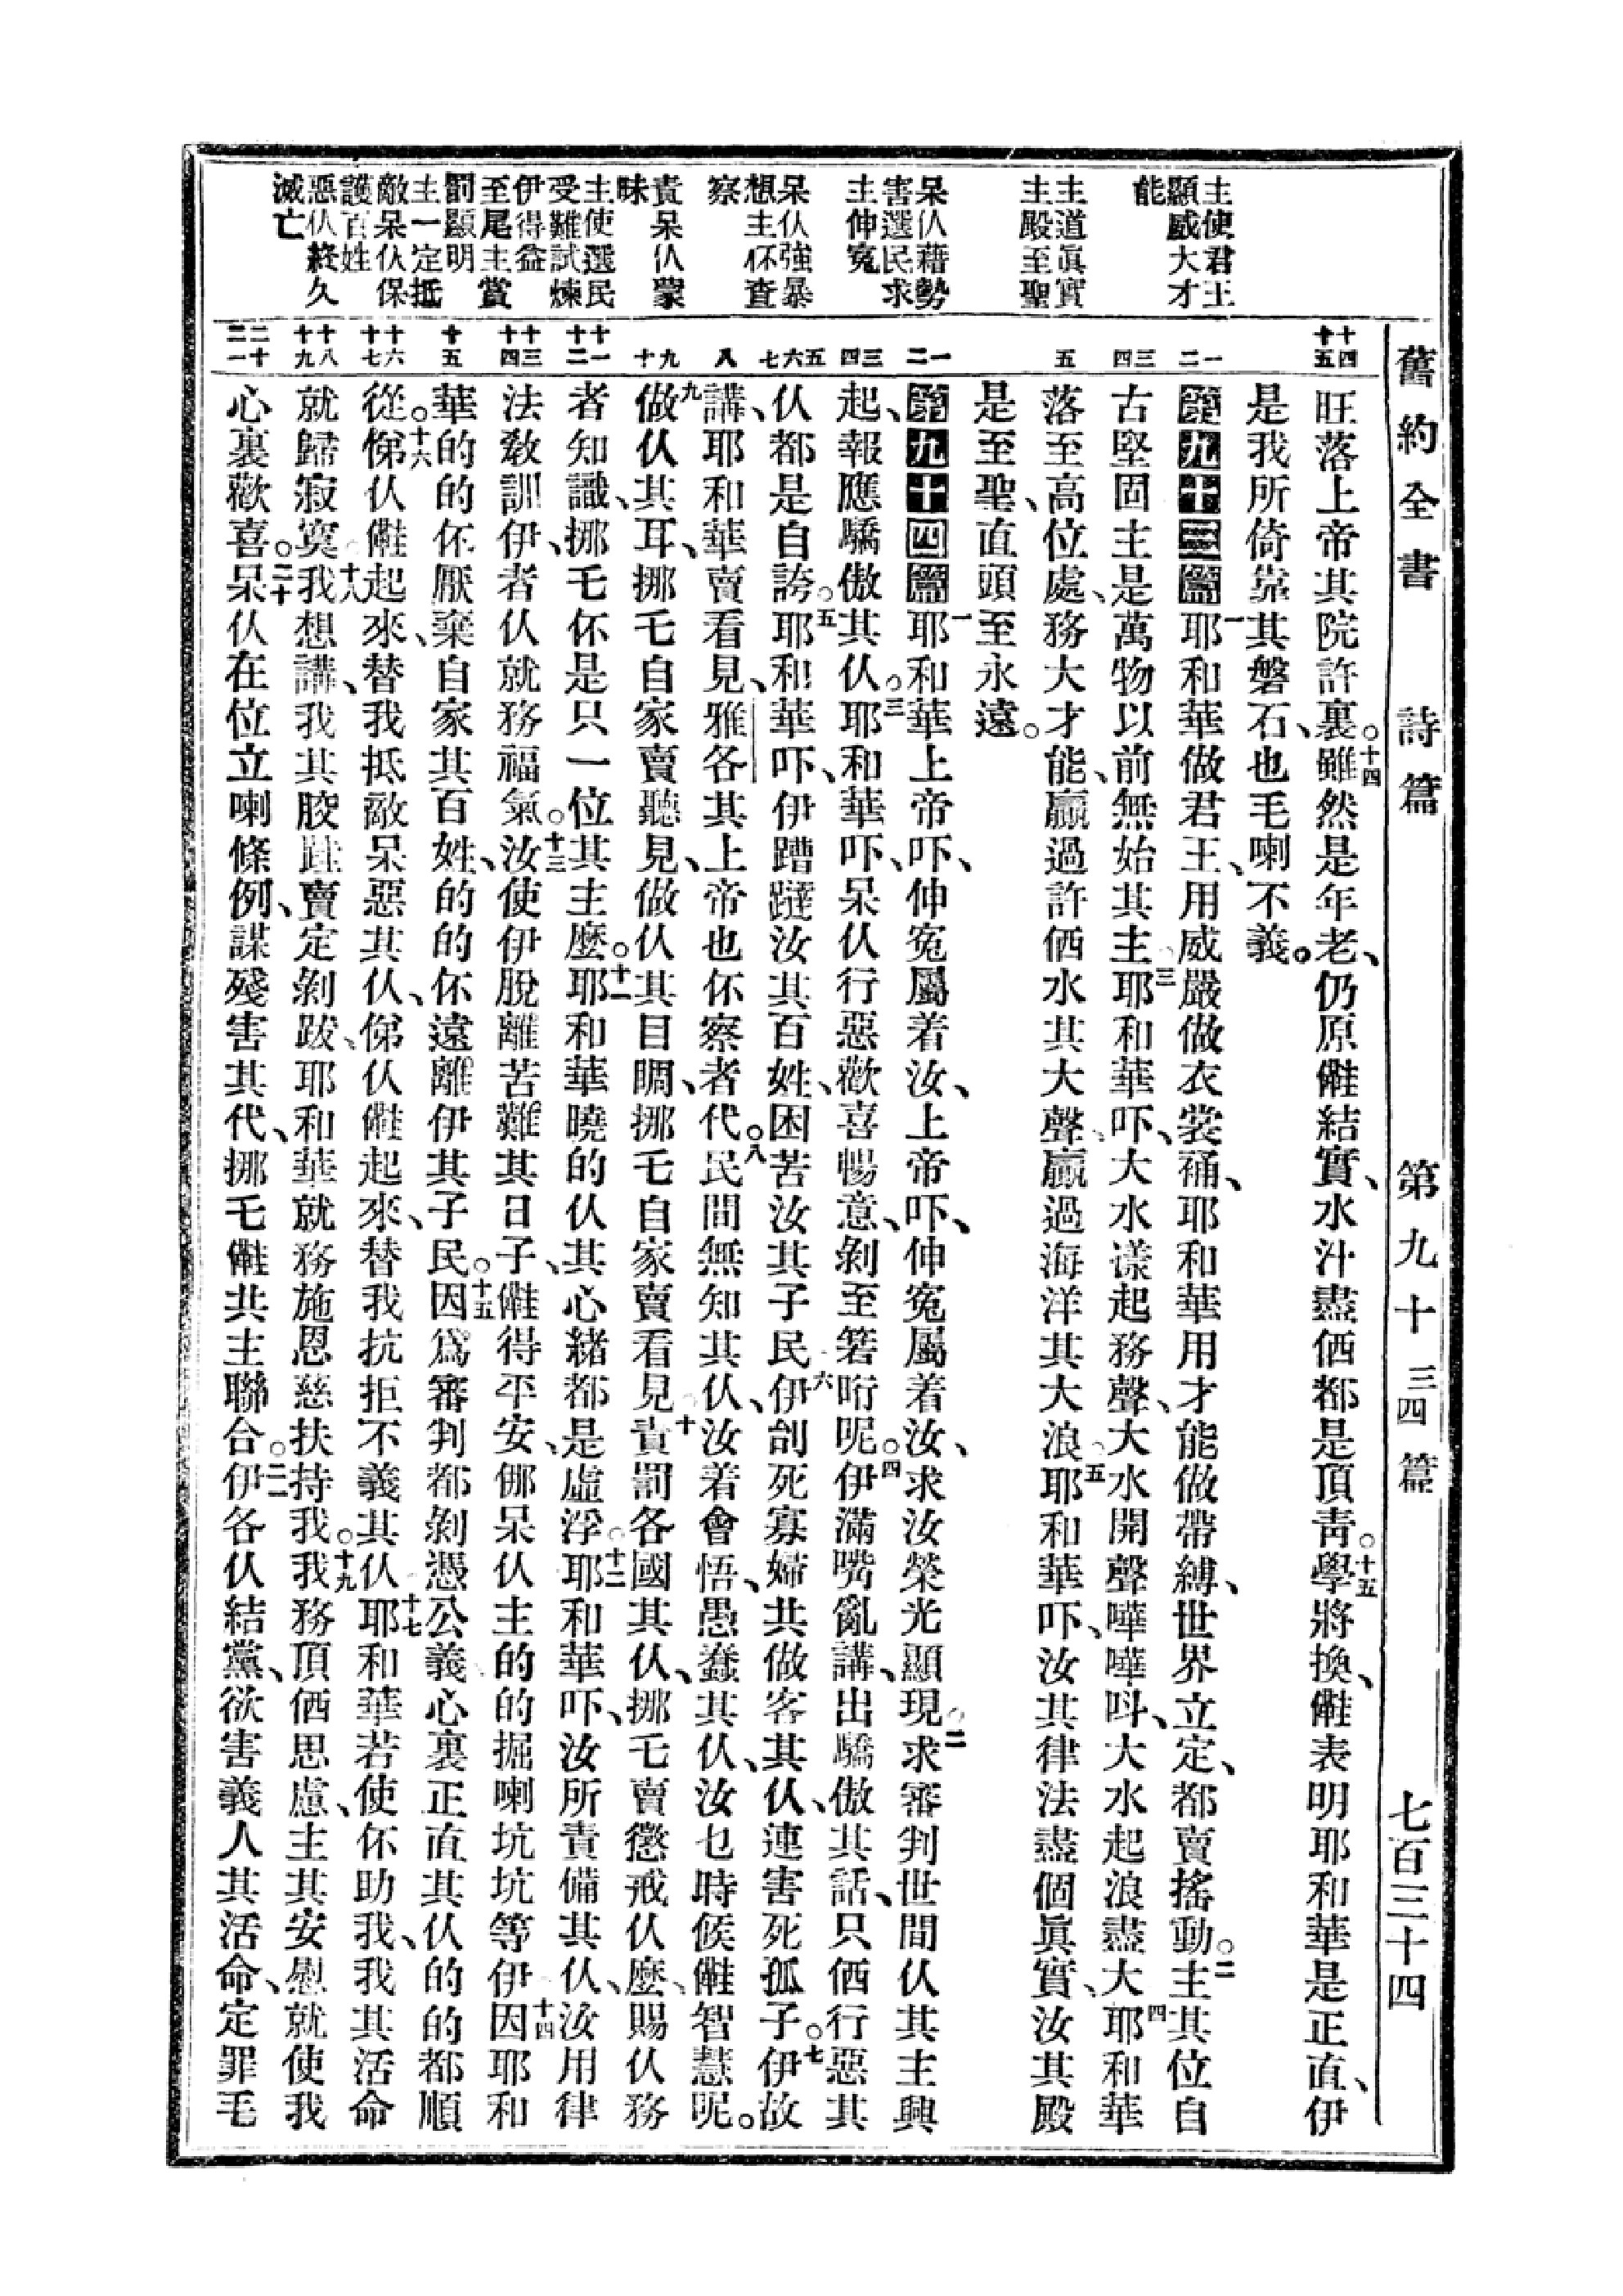 舊約全書 詩篇 第九十三四篇 七百三十四
主使君王
顯威大才
能
主道眞實
主殿至聖
呆仈藉勢
害選民求
主伸寃
呆仈強暴
想主伓查
察
責呆仈蒙
昧
主使選民
受難試煉
伊得益
至尾主賞
罰顯明
主一定抵
敵呆仈保
護百姓
惡仈終久
滅亡
十四 十五
一 二
三 四
五
一 二
三 四
五 六 七
八
九 十
十一 十二
十三 十四
十五
十六 十七
十八 十九
二十 二一
旺落上帝其院許裏。十四雖然是年老、仍原㒤結實、水汁盡価都是頂靑。十五學將換、㒤表明耶和華是正直、伊
是我所倚靠其磐石、也毛喇不義。
第九十三篇 一耶和華做君王、用威嚴做衣裳𧙕、耶和華用才能做帶縛、世界立定、都賣搖動。二主其位自
古堅固主是萬物以前無始其主三耶和華吓、大水漾起務聲、大水開聲嘩嘩呌、大水起浪盡大四耶和華
落至高位處、務大才能、贏過許価水其大聲、贏過海洋其大浪五耶和華吓、汝其律法盡個眞實、汝其殿
是至聖、直頭至永遠。
第九十四篇 一耶和華上帝吓、伸寃屬着汝、上帝吓、伸寃屬着汝、求汝榮光顯現二求審判世間仈其主興
起、報應驕傲其仈。三耶和華吓、呆仈行惡歡喜暢意、剝至䇬哘呢。四伊滿嘴亂講、出驕傲其話、只価行惡其
仈都是自誇。五耶和華吓、伊蹧蹋汝其百姓、困苦汝其子民六伊刣死寡婦共做客其仈、連害死孤子。七伊故
講、耶和華賣看見、雅各其上帝也伓察者。八代民間無知其仈、汝着會悟、愚蠢其仈、汝乜時候㒤智慧呢。
九做仈其耳、挪乇自家賣聽見、做仈其目睭、挪乇自家賣看見十責罰各國其仈、挪乇賣懲戒仈麼、賜仈務
者知識、挪乇伓是只一位其主麼。十一耶和華曉的仈其心緒都是虛浮。十二耶和華吓、汝所責備其仈、汝用律
法敎訓伊、者仈就務福氣。十三汝使伊脫離苦難其日子、㒤得平安、㑚呆仈主的的掘喇坑坑等伊十四因耶和
華的的伓厭棄自家其百姓、的的伓遠離伊其子民。十五因爲審判都剝憑公義心裏正直其仈的的都順
從。十六俤仈㒤起來、替我抵敵呆惡其仈、俤仈㒤起來、替我抗拒不義其仈十七耶和華若使伓助我、我其活命
就歸寂寞。十八我想講、我其骹𨂿賣定剝跋、耶和華就務施恩慈扶持我。十九我務頂価思慮、主其安慰就使我
心裏歡喜。二十呆仈在位立喇條例、謀殘害其代、挪乇㒤共主聯合。二一伊各仈結黨、欲害義人其活命、定罪毛